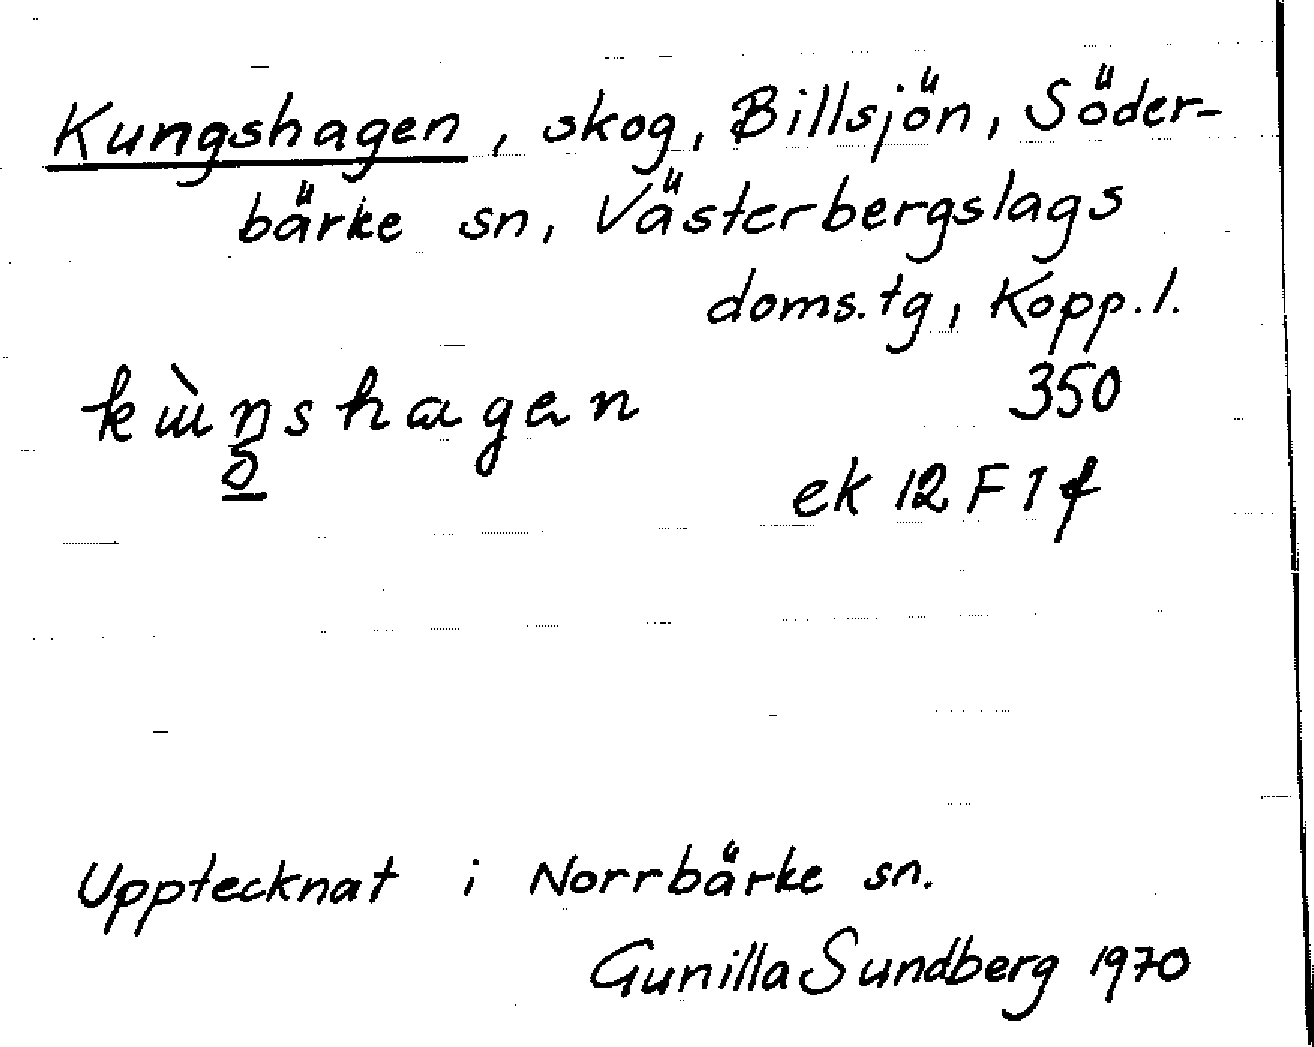 Kungshagen, skog, Billsjön, Söder-
bärke sn, Västerbergslags
doms.tg, Kopp.l.
350
ek 12 F 1 f
Upptecknat i Norrbärke sn.
Gunilla Sundberg 1970